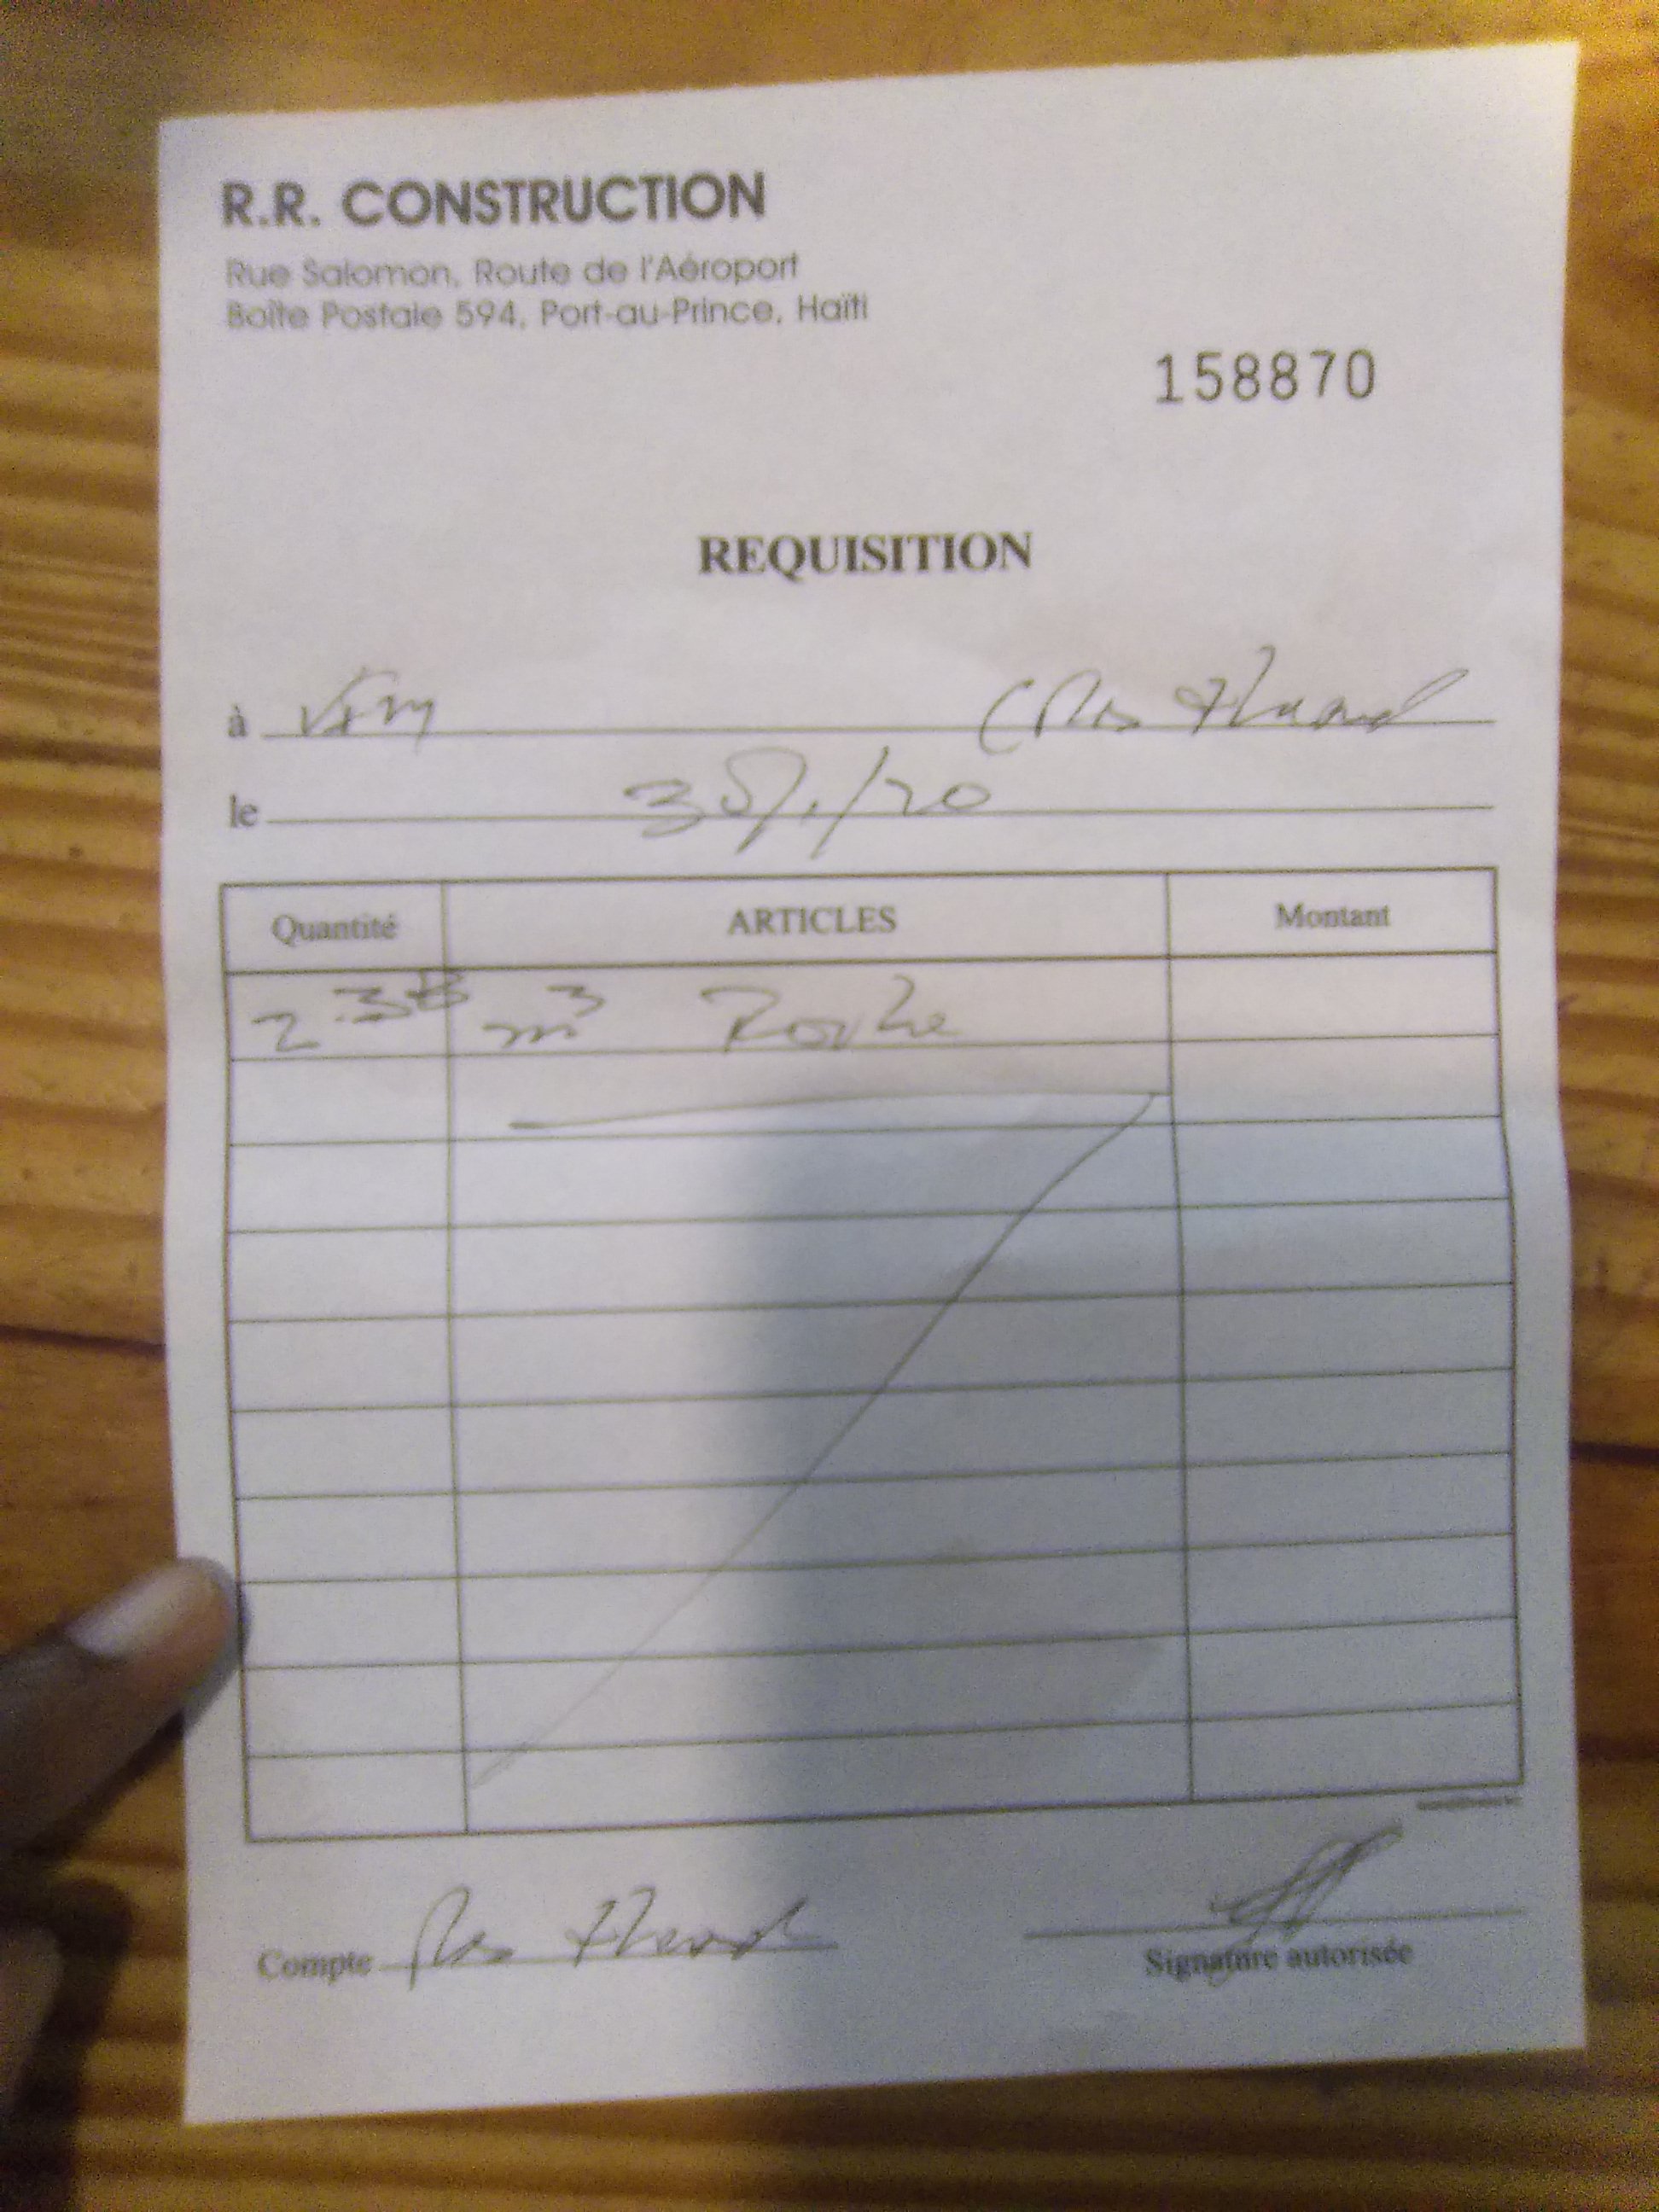 R.R. CONSTRUCTION
Rue Salomon, Route de l'Aéroport
Boîte Postale 594, Port-au-Prince, Haïti
158870
REQUISITION
à
le /20
Quantité ARTICLES Montant
2 m³ Roche
Compte
Signature autorisée